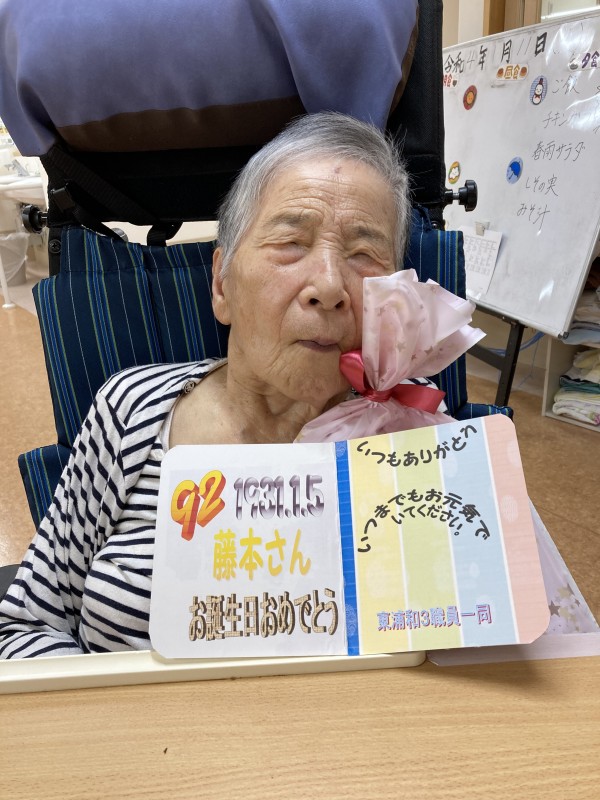 令和4年 月11日
ご飯
チキン
春雨サラダ
しその実
みそ汁
92 1931.1.5
藤本さん
お誕生日おめでとう
いつもありがとう
いつまでもお元気で
いてください。
東浦和3職員一同